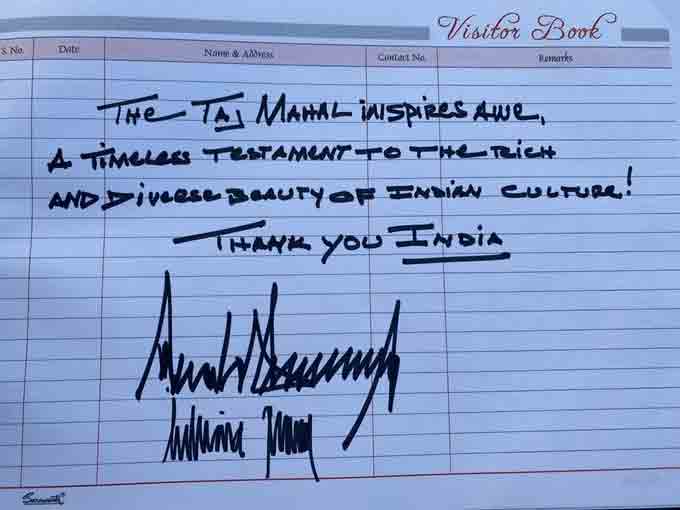 Visitor Book
S. No. Date Name & Address Contact No. Remarks
THE TAJ MAHAL iNSPIRES AWE,
A TIMELESS TESTAMENT TO THE RICH
AND DIVERSE BEAUTY OF INDIAN CULTURE!
THANK YOU INDIA